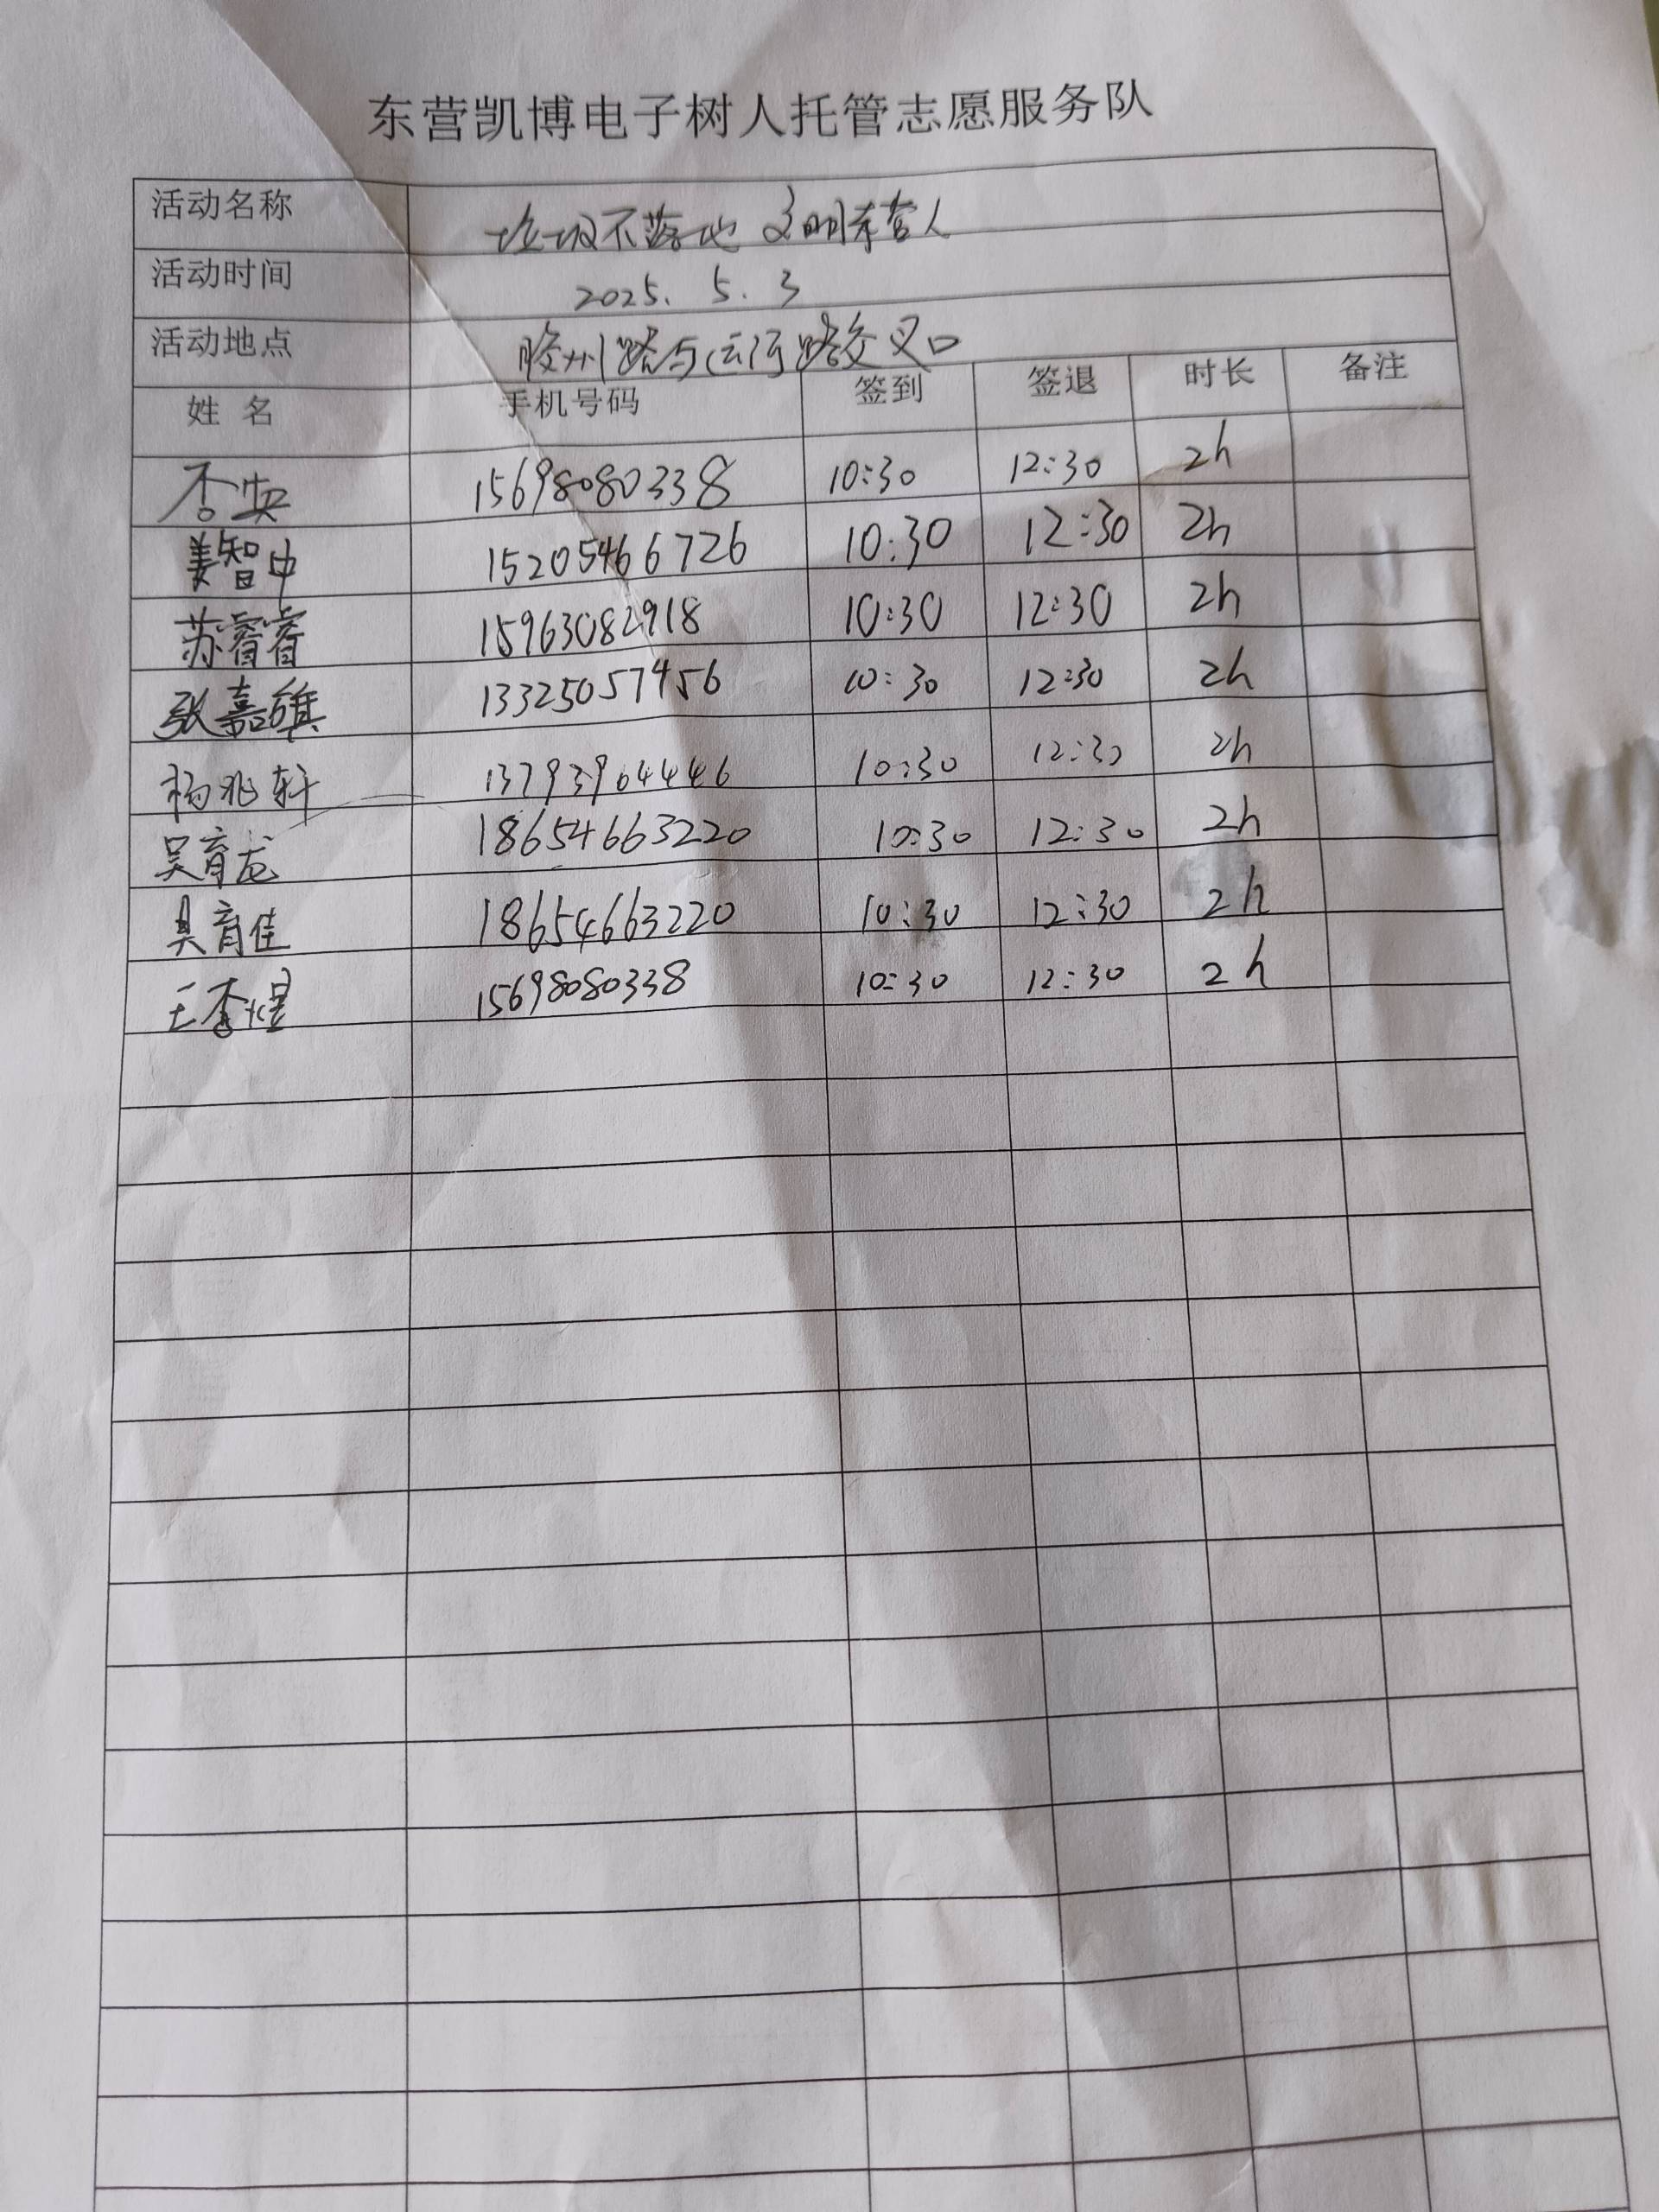 东营凯博电子树人托管志愿服务队
活动名称 垃圾不落地 文明东营人
活动时间 2025. 5. 3
活动地点 胶州路与运河路交叉口
姓 名 手机号码 签到 签退 时长 备注
15698080338 10:30 12:30 2h
姜智中 15205466726 10:30 12:30 2h
苏睿睿 15963082918 10:30 12:30 2h
张嘉 13325057456 10:30 12:30 2h
杨兆轩 13793904446 10:30 12:30 2h
吴育龙 18654663220 10:30 12:30 2h
吴育佳 18654663220 10:30 12:30 2h
王李煜 15698080338 10:30 12:30 2h